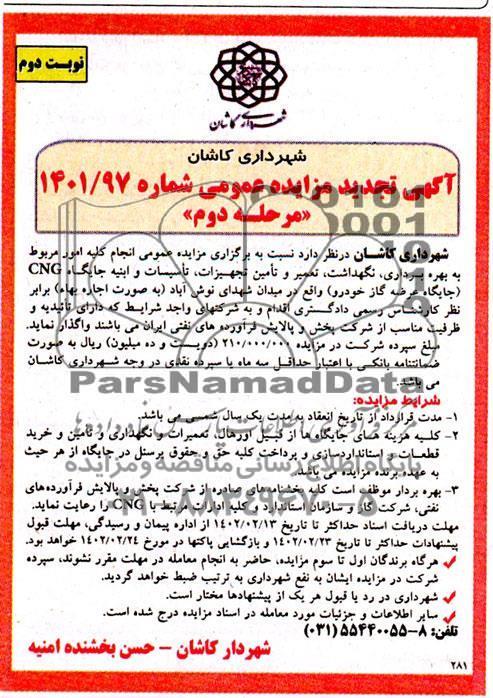 نوبت دوم
شهرداری کاشان
شهرداری کاشان
آگهی تجدید مزایده عمومی شماره ۱۴۰۱/۹۷
«مرحله دوم»
شهرداری کاشان درنظر دارد نسبت به برگزاری مزایده عمومی انجام کلیه امور مربوط
به بهره برداری، نگهداشت، تعمیر و تأمین تجهیزات، تأسیسات و ابنیه جایگاه CNG
(جایگاه عرضه گاز خودرو) واقع در میدان شهدای نوش آباد (به صورت اجاره بهاء) برابر
نظر کارشناس رسمی دادگستری اقدام و به شرکتهای واجد شرایط که دارای تأئیدیه و
ظرفیت مناسب از شرکت پخش و پالایش فرآورده های نفتی ایران می باشند واگذار نماید.
مبلغ سپرده شرکت در مزایده ۲۱۰/۰۰۰/۰۰۰ (دویست و ده میلیون) ریال به صورت
ضمانتنامه بانکی با اعتبار حداقل سه ماه یا سپرده نقدی در وجه شهرداری کاشان
می باشد.
ParsNamadData
شرایط مزایده:
۱- مدت قرارداد از تاریخ انعقاد به مدت یک سال شمسی می باشد.
۲- کلیه هزینه های جایگاه ها از قبیل اورهال، تعمیرات و نگهداری و تأمین و خرید
قطعات و استانداردسازی و پرداخت کلیه حق و حقوق پرسنل در جایگاه از هر حیث
به عهده برنده مزایده می باشد.
پایگاه اطلاع رسانی مناقصه و مزایده
۳- بهره بردار موظف است کلیه بخشنامه های صادره از شرکت پخش و پالایش فرآورده‌های
نفتی، شرکت گاز و سازمان استاندارد و کلیه ادارات مرتبط با CNG را رعایت نماید.
۰۲۱-۸۸۳۴۹۶۷۰-۵
مهلت دریافت اسناد حداکثر تا تاریخ ۱۴۰۲/۰۲/۱۳ از اداره پیمان و رسیدگی، مهلت قبول
پیشنهادات حداکثر تا تاریخ ۱۴۰۲/۰۲/۲۳ و بازگشایی پاکتها در مورخ ۱۴۰۲/۰۲/۲۴ خواهد بود.
هرگاه برندگان اول تا سوم مزایده، حاضر به انجام معامله در مهلت مقرر نشوند، سپرده
شرکت در مزایده ایشان به نفع شهرداری به ترتیب ضبط خواهد گردید.
شهرداری در رد یا قبول هر یک از پیشنهادها مختار است.
سایر اطلاعات و جزئیات مورد معامله در اسناد مزایده درج شده است.
تلفن: ۸-۵۵۴۴۰۰۵۵ (۰۳۱)
شهردار کاشان - حسن بخشنده امنیه
۲۸۱